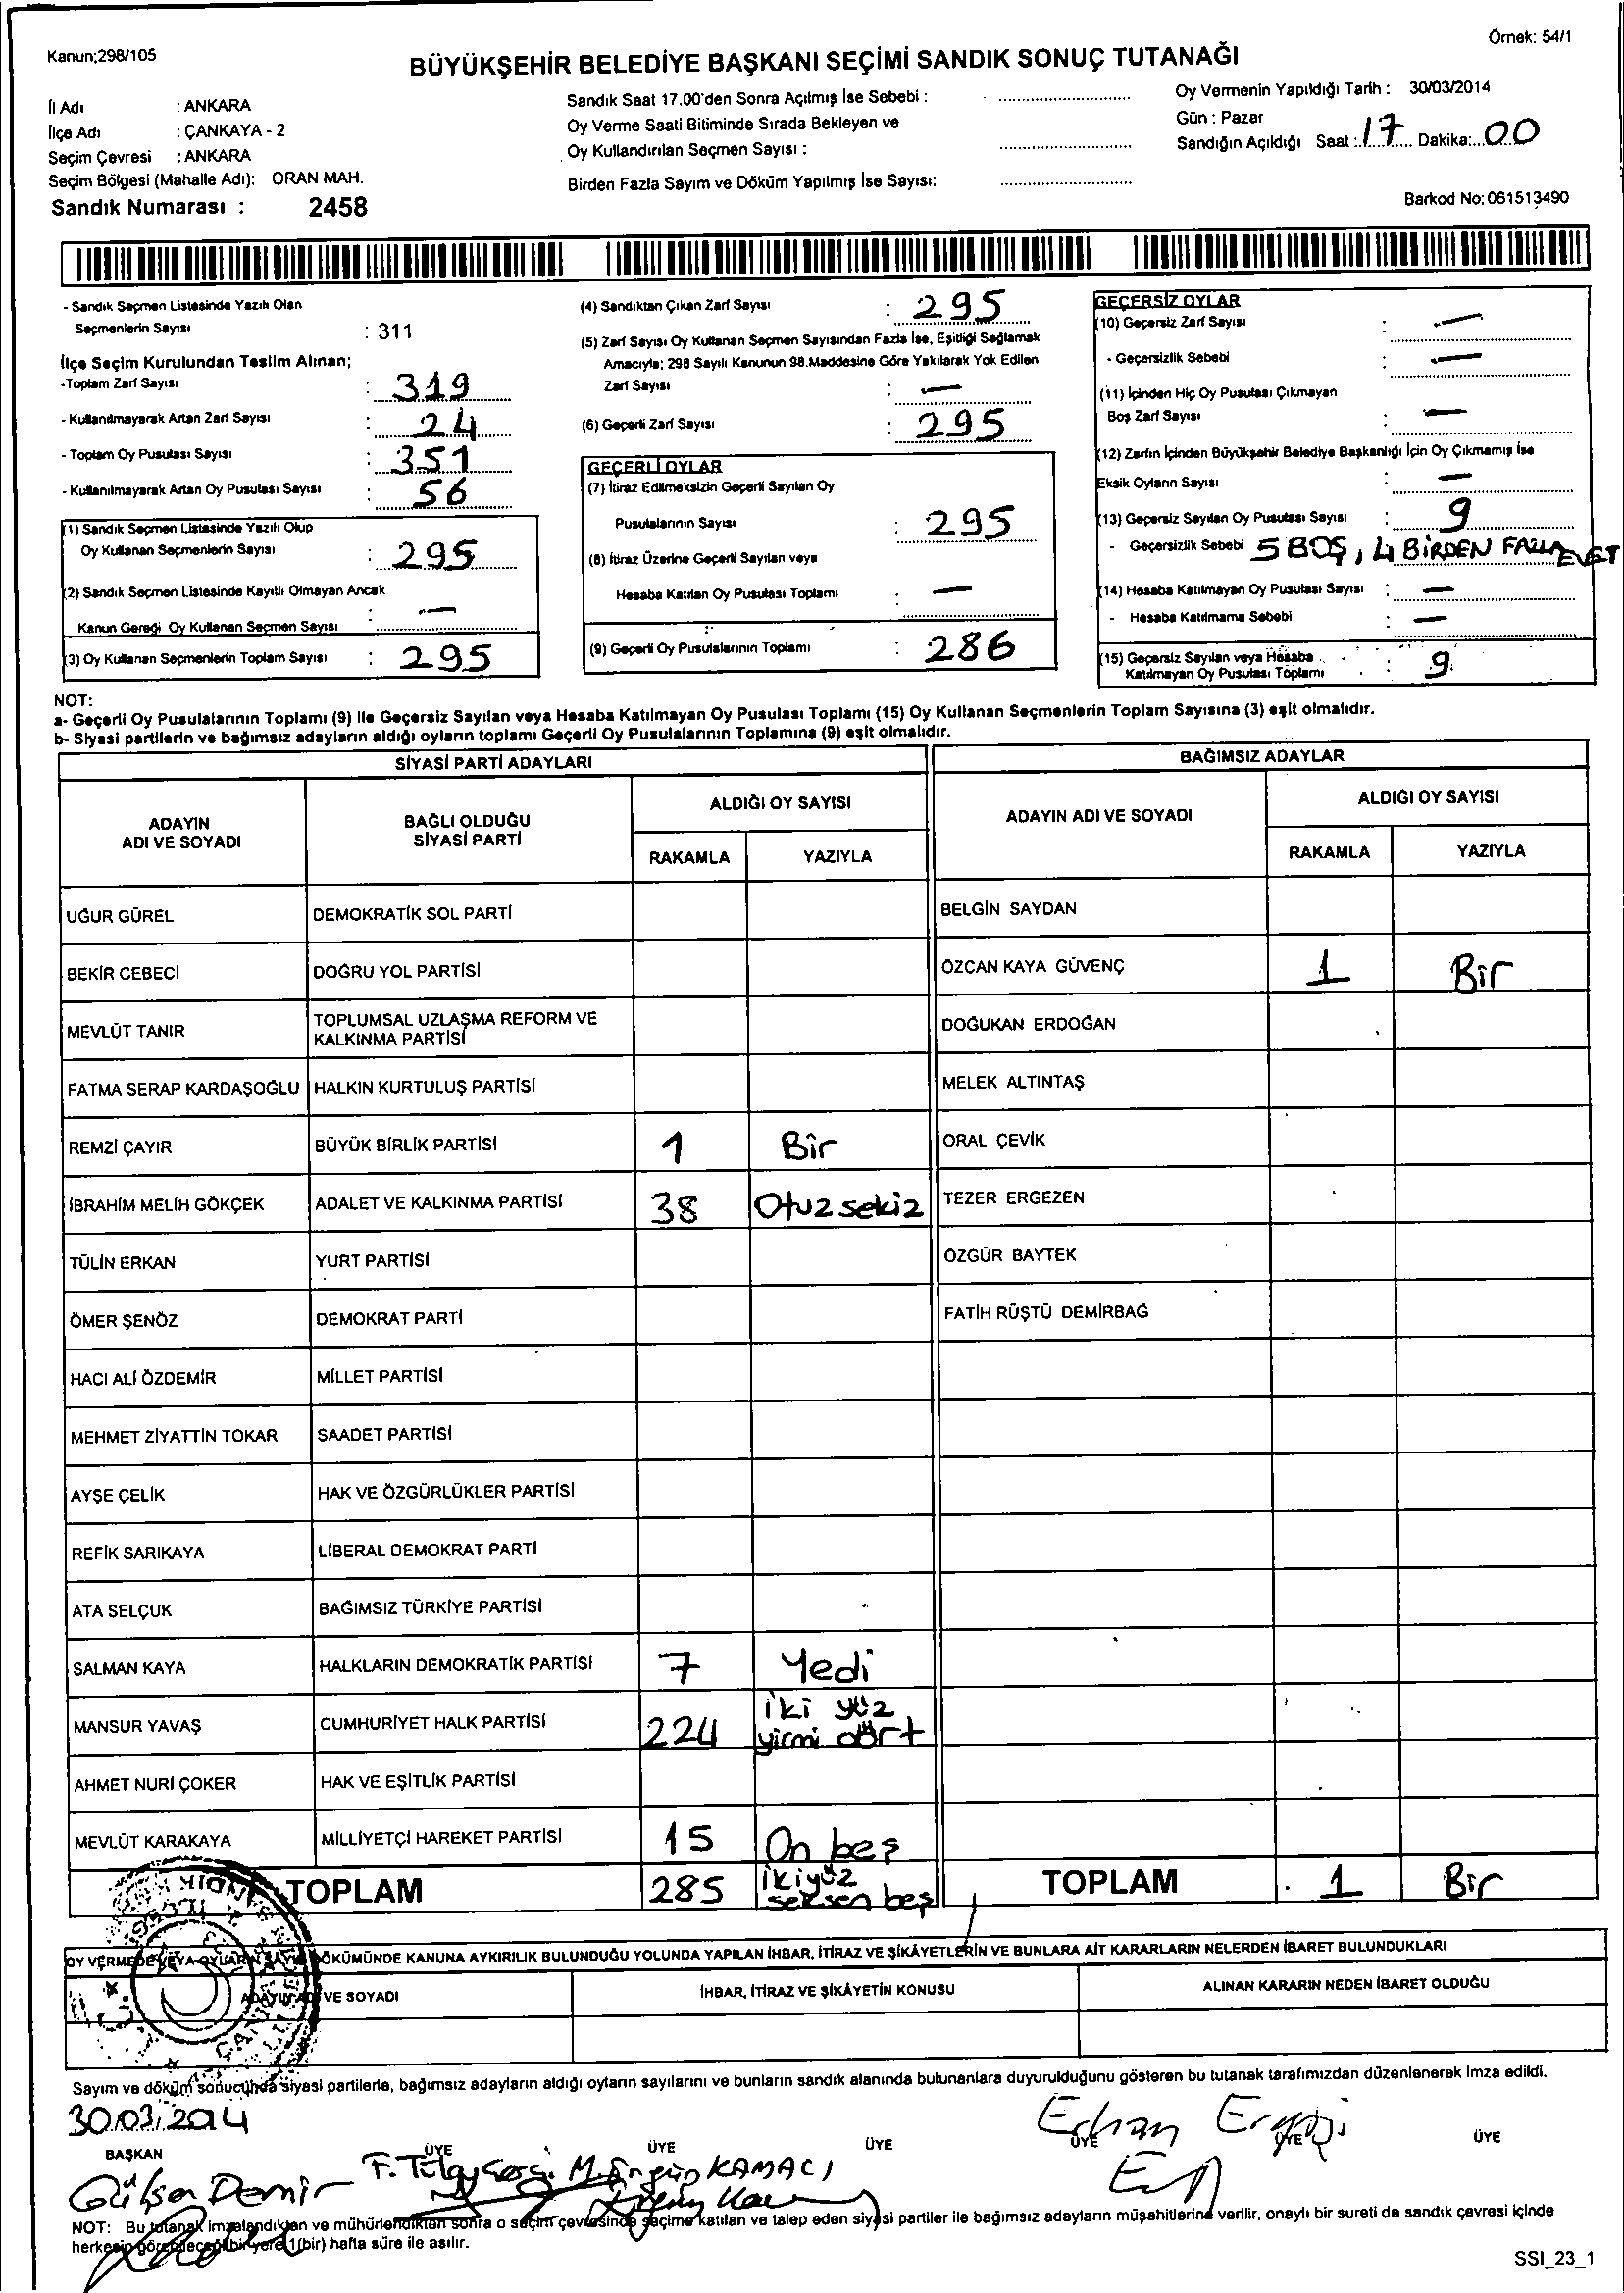 Kanun;298/105
Örnek: 54/1
BÜYÜKŞEHİR BELEDİYE BAŞKANI SEÇİMİ SANDIK SONUÇ TUTANAĞI
İl Adı : ANKARA
İlçe Adı : ÇANKAYA - 2
Seçim Çevresi : ANKARA
Seçim Bölgesi (Mahalle Adı): ORAN MAH.
Sandık Numarası : 2458
Sandık Saat 17.00'den Sonra Açılmış İse Sebebi :
Oy Verme Saati Bitiminde Sırada Bekleyen ve
Oy Kullandırılan Seçmen Sayısı :
Birden Fazla Sayım ve Döküm Yapılmış İse Sayısı:
Oy Vermenin Yapıldığı Tarih : 30/03/2014
Gün : Pazar
Sandığın Açıldığı Saat : 17 Dakika: 00
Barkod No: 061513490
- Sandık Seçmen Listesinde Yazılı Olan
Seçmenlerin Sayısı : 311
İlçe Seçim Kurulundan Teslim Alınan;
-Toplam Zarf Sayısı : 319
- Kullanılmayarak Artan Zarf Sayısı : 24
- Toplam Oy Pusulası Sayısı : 351
- Kullanılmayarak Artan Oy Pusulası Sayısı : 56
(1) Sandık Seçmen Listesinde Yazılı Olup
Oy Kullanan Seçmenlerin Sayısı : 295
(2) Sandık Seçmen Listesinde Kayıtlı Olmayan Ancak
Kanun Gereği Oy Kullanan Seçmen Sayısı : —
(3) Oy Kullanan Seçmenlerin Toplam Sayısı : 295
(4) Sandıktan Çıkan Zarf Sayısı : 295
(5) Zarf Sayısı Oy Kullanan Seçmen Sayısından Fazla İse, Eşitliği Sağlamak
Amacıyla; 298 Sayılı Kanunun 98.Maddesine Göre Yakılarak Yok Edilen
Zarf Sayısı : —
(6) Geçerli Zarf Sayısı : 295
GEÇERLİ OYLAR
(7) İtiraz Edilmeksizin Geçerli Sayılan Oy
Pusulalarının Sayısı : 295
(8) İtiraz Üzerine Geçerli Sayılan veya
Hesaba Katılan Oy Pusulası Toplamı : —
(9) Geçerli Oy Pusulalarının Toplamı : 286
GEÇERSİZ OYLAR
(10) Geçersiz Zarf Sayısı : —
- Geçersizlik Sebebi : —
(11) İçinden Hiç Oy Pusulası Çıkmayan
Boş Zarf Sayısı : —
(12) Zarfın İçinden Büyükşehir Belediye Başkanlığı İçin Oy Çıkmamış İse
Eksik Oyların Sayısı : —
(13) Geçersiz Sayılan Oy Pusulası Sayısı : 9
- Geçersizlik Sebebi 5 BOŞ, 4 BİRDEN FAZLA EVET
(14) Hesaba Katılmayan Oy Pusulası Sayısı : —
- Hesaba Katılmama Sebebi : —
(15) Geçersiz Sayılan veya Hesaba
Katılmayan Oy Pusulası Toplamı : 9
NOT:
a- Geçerli Oy Pusulalarının Toplamı (9) İle Geçersiz Sayılan veya Hesaba Katılmayan Oy Pusulası Toplamı (15) Oy Kullanan Seçmenlerin Toplam Sayısına (3) eşit olmalıdır.
b- Siyasi partilerin ve bağımsız adayların aldığı oyların toplamı Geçerli Oy Pusulalarının Toplamına (9) eşit olmalıdır.
SİYASİ PARTİ ADAYLARI
ADAYIN ADI VE SOYADI BAĞLI OLDUĞU SİYASİ PARTİ ALDIĞI OY SAYISI
RAKAMLA YAZIYLA
UĞUR GÜREL DEMOKRATİK SOL PARTİ
BEKİR CEBECİ DOĞRU YOL PARTİSİ
MEVLÜT TANIR TOPLUMSAL UZLAŞMA REFORM VE KALKINMA PARTİSİ
FATMA SERAP KARDAŞOĞLU HALKIN KURTULUŞ PARTİSİ
REMZİ ÇAYIR BÜYÜK BİRLİK PARTİSİ 1 Bir
İBRAHİM MELİH GÖKÇEK ADALET VE KALKINMA PARTİSİ 38 Otuz sekiz
TÜLİN ERKAN YURT PARTİSİ
ÖMER ŞENÖZ DEMOKRAT PARTİ
HACI ALİ ÖZDEMİR MİLLET PARTİSİ
MEHMET ZİYATTİN TOKAR SAADET PARTİSİ
AYŞE ÇELİK HAK VE ÖZGÜRLÜKLER PARTİSİ
REFİK SARIKAYA LİBERAL DEMOKRAT PARTİ
ATA SELÇUK BAĞIMSIZ TÜRKİYE PARTİSİ
SALMAN KAYA HALKLARIN DEMOKRATİK PARTİSİ 7 Yedi
MANSUR YAVAŞ CUMHURİYET HALK PARTİSİ 224 iki yüz yirmi dört
AHMET NURİ ÇOKER HAK VE EŞİTLİK PARTİSİ
MEVLÜT KARAKAYA MİLLİYETÇİ HAREKET PARTİSİ 15 On beş
TOPLAM 285 ikiyüz seksen beş
BAĞIMSIZ ADAYLAR
ADAYIN ADI VE SOYADI ALDIĞI OY SAYISI
RAKAMLA YAZIYLA
BELGİN SAYDAN
ÖZCAN KAYA GÜVENÇ 1 Bir
DOĞUKAN ERDOĞAN
MELEK ALTINTAŞ
ORAL ÇEVİK
TEZER ERGEZEN
ÖZGÜR BAYTEK
FATİH RÜŞTÜ DEMİRBAĞ
TOPLAM 1 Bir
OY VERMEDE VEYA OYLARIN SAYIM DÖKÜMÜNDE KANUNA AYKIRILIK BULUNDUĞU YOLUNDA YAPILAN İHBAR, İTİRAZ VE ŞİKÂYETLERİN VE BUNLARA AİT KARARLARIN NELERDEN İBARET BULUNDUKLARI
ADAYIN ADI VE SOYADI İHBAR, İTİRAZ VE ŞİKÂYETİN KONUSU ALINAN KARARIN NEDEN İBARET OLDUĞU
Sayım ve döküm sonucunda siyasi partilerle, bağımsız adayların aldığı oyların sayılarını ve bunların sandık alanında bulunanlara duyurulduğunu gösteren bu tutanak tarafımızdan düzenlenerek imza edildi.
30.03.2014
BAŞKAN ÜYE ÜYE ÜYE ÜYE ÜYE ÜYE
Demir KAMACI Erhan
NOT: Bu tutanak imzalandıktan ve mühürlendikten sonra o seçim çevresinde seçime katılan ve talep eden siyasi partiler ile bağımsız adayların müşahitlerine verilir, onaylı bir sureti de sandık çevresi içinde
herkesin görebileceği bir yere 1(bir) hafta süre ile asılır.
SSI_23_1